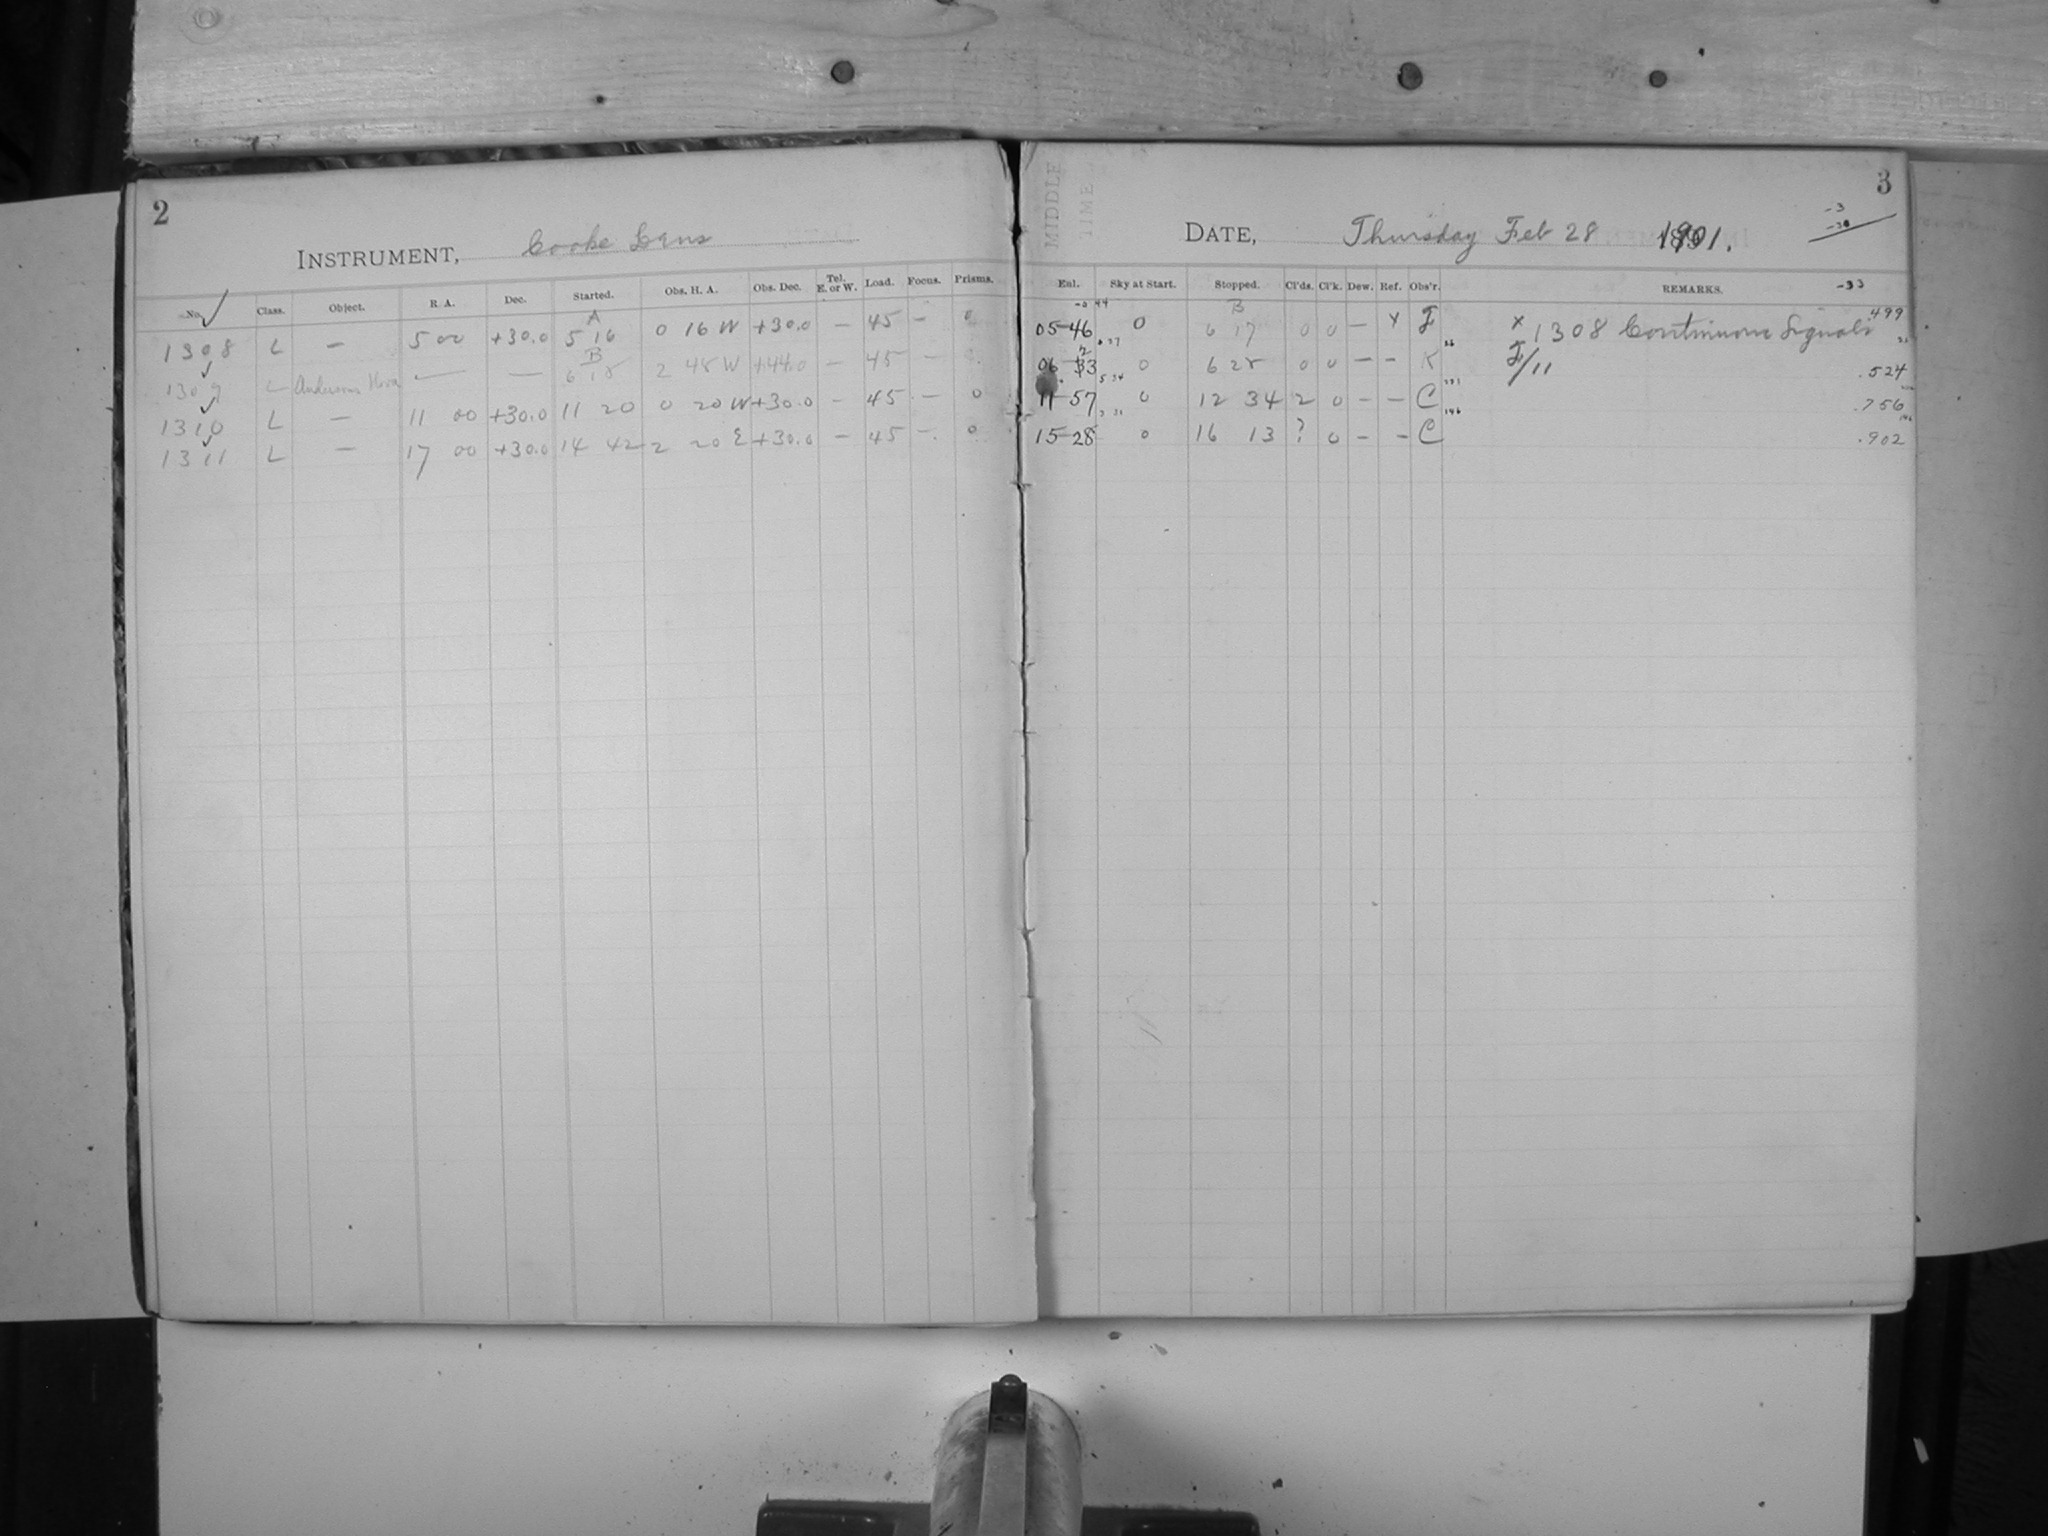 2
INSTRUMENT, Cooke Lens
No. Class. Object. R. A. Dec. Started. Obs. H. A. Obs. Dec. Tel. E. or W. Load. Focus. Prisms.
A
1308 L — 5 00 +30.0 5 16 0 16 W +30.0 — 45 — 0
B
1309 L Andersons Nova — — 6 18 2 48 W +44.0 — 45 —
1310 L — 11 00 +30.0 11 20 0 20 W +30.0 — 45 — 0
1311 L — 17 00 +30.0 14 42 2 20 E +30.0 — 45 — 0
MIDDLE TIME
3
DATE, Thursday Feb 28 1901.
-3
-30
-33
Enl. Sky at Start. Stopped. Cl'ds. Cl'k. Dew. Ref. Obs'r. REMARKS.
B
05-46 0 6 17 0 0 — x F x 1308 Continuous Signals .499
06 0 6 28 0 0 — — K F/11 .524
11-57 0 12 34 2 0 — — C .756
15-28 0 16 13 ? 0 — — C .902